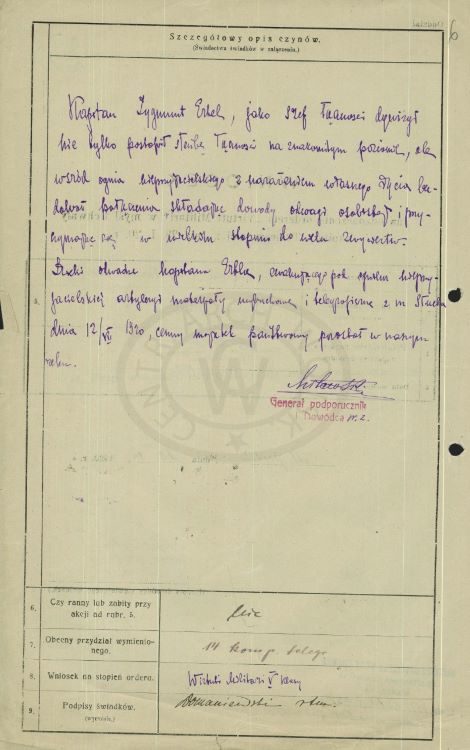 6
Szczegółowy opis czynów.
(Świadectwa świadków w załączeniu).
Kapitan Zygmunt Erbel, jako Szef Łączności dywizji
nie tylko postawił służbę łączności na znakomitym poziomie, ale
wśród ognia nieprzyjacielskiego z narażeniem własnego życia bu-
dował połączenia składając dowody odwagi osobistej i przy-
czyniając się w wielkim stopniu do wielu zwycięstw.
Dzięki odwadze kapitana Erbla, ewakuującego pod ogniem nieprzy-
jacielskiej artylerji materjały wybuchowe i telegraficzne z m.
dnia 12/VII 1920, cenny majątek państwowy pozostał w naszym
ręku.
5.
Generał podporucznik
i Dowódca
6. Czy ranny lub zabity przy
akcji ad rubr. 5.
Nie
7. Obecny przydział wymienio-
nego.
14 komp. telegr.
8. Wniosek na stopień orderu.
Virtuti Militari V klasy
9. Podpisy świadków.
(wyraźnie.)
Domaniewski rtm.